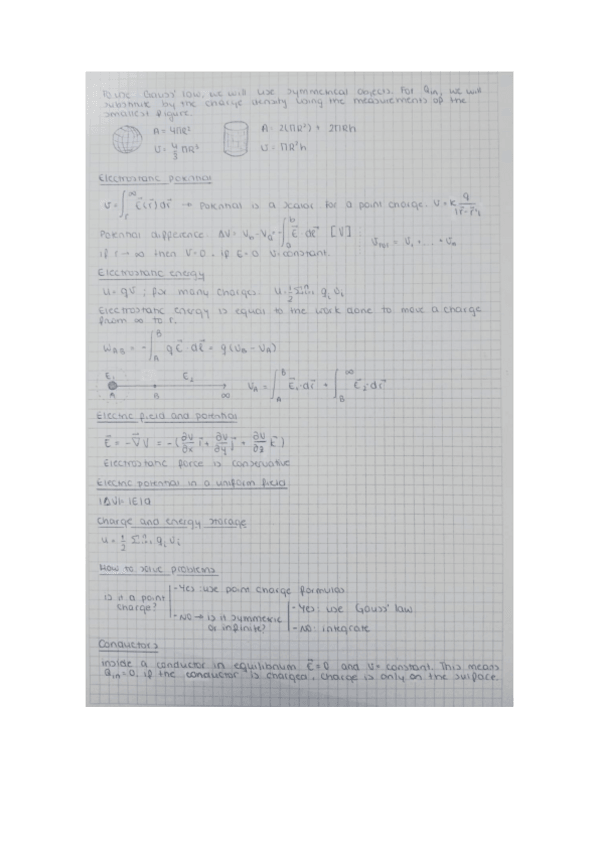 To use Gauss' law, we will use symmetrical objects. For Qin, we will
substitute by the charge density using the measurements of the
smallest figure.
A = 4πR²
V = 4/3 πR³
A = 2(πR²) + 2πRh
V = πR²h
Electrostatic potential
V = ∫_r^∞ E⃗(r⃗)dr⃗ → Potential is a scalar for a point charge. V = K q/|r⃗-r⃗'|
Potential difference: ΔV = V_b - V_a = -∫_a^b E⃗ dℓ⃗ [V] : V_tot = V₁ + ... + V_n
if r → ∞ then V=0. if E=0 V=constant.
Electrostatic energy
U = qV ; for many charges: U = 1/2 Σⁿᵢ₌₁ qᵢ Vᵢ
Electrostatic energy is equal to the work done to move a charge
from ∞ to r.
W_AB = -∫_A^B q E⃗ · dℓ⃗ = q(V_B - V_A)
E₁ E₂
A B ∞
V_A = ∫_A^B E⃗₁ · dr⃗ + ∫_B^∞ E⃗₂ · dr⃗
Electric field and potential
E⃗ = -∇⃗V = -(∂V/∂x i⃗ + ∂V/∂y j⃗ + ∂V/∂z k⃗)
Electrostatic force is conservative
Electric potential in a uniform field
|ΔV| = |E|d
Charge and energy storage
U = 1/2 Σⁿᵢ₌₁ qᵢ Vᵢ
How to solve problems
Is it a point
charge?
- Yes: use point charge formulas
- No → is it symmetric
or infinite?
- Yes: use Gauss' law
- No: integrate
Conductors
Inside a conductor in equilibrium E⃗=0 and V=constant. This means
Qin=0. if the conductor is charged, charge is only on the surface.